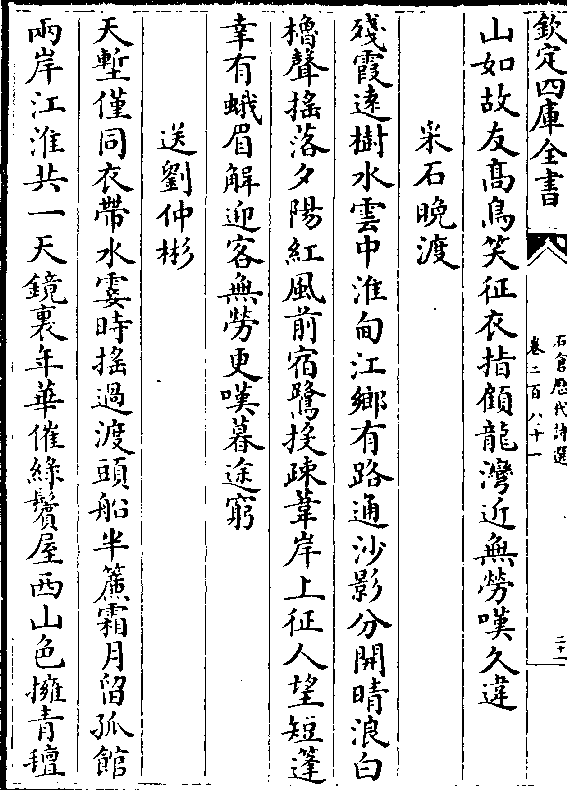 欽定四庫全書
石倉歷代詩選
卷二百八十一
二十一
山如故友高鳥笑征衣指顧龍灣近無勞嘆久違
采石晚渡
殘霞遠樹水雲中淮甸江鄉有路通沙影分開晴浪白
櫓聲搖落夕陽紅風前宿鷺挨疎葦岸上征人望短蓬
幸有蛾眉解迎客無勞更嘆暮途窮
送劉仲彬
天塹僅同衣帶水霎時搖過渡頭船半簾霜月留孤館
兩岸江淮共一天鏡裏年華催綠鬢屋西山色擁青氊